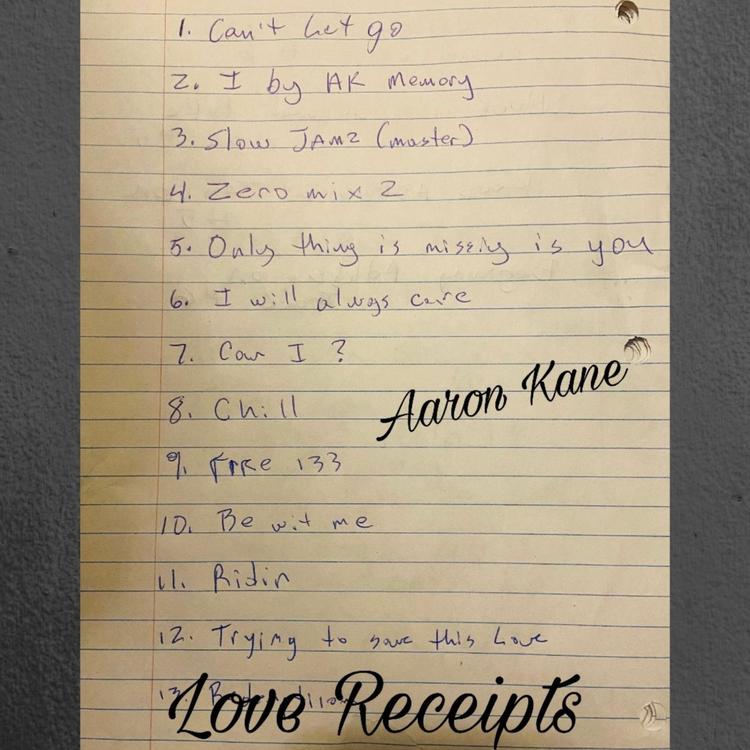 1. Can't Let go
2. I by AK Memory
3. Slow JAMZ (master)
4. Zero mix 2
5. Only thing is missing is you
6. I will always care
7. Can I ?
Aaron Kane
8. Chill
9. Fire 133
10. Be wit me
11. Ridin
12. Trying to save this Love
13.
Love Receipts